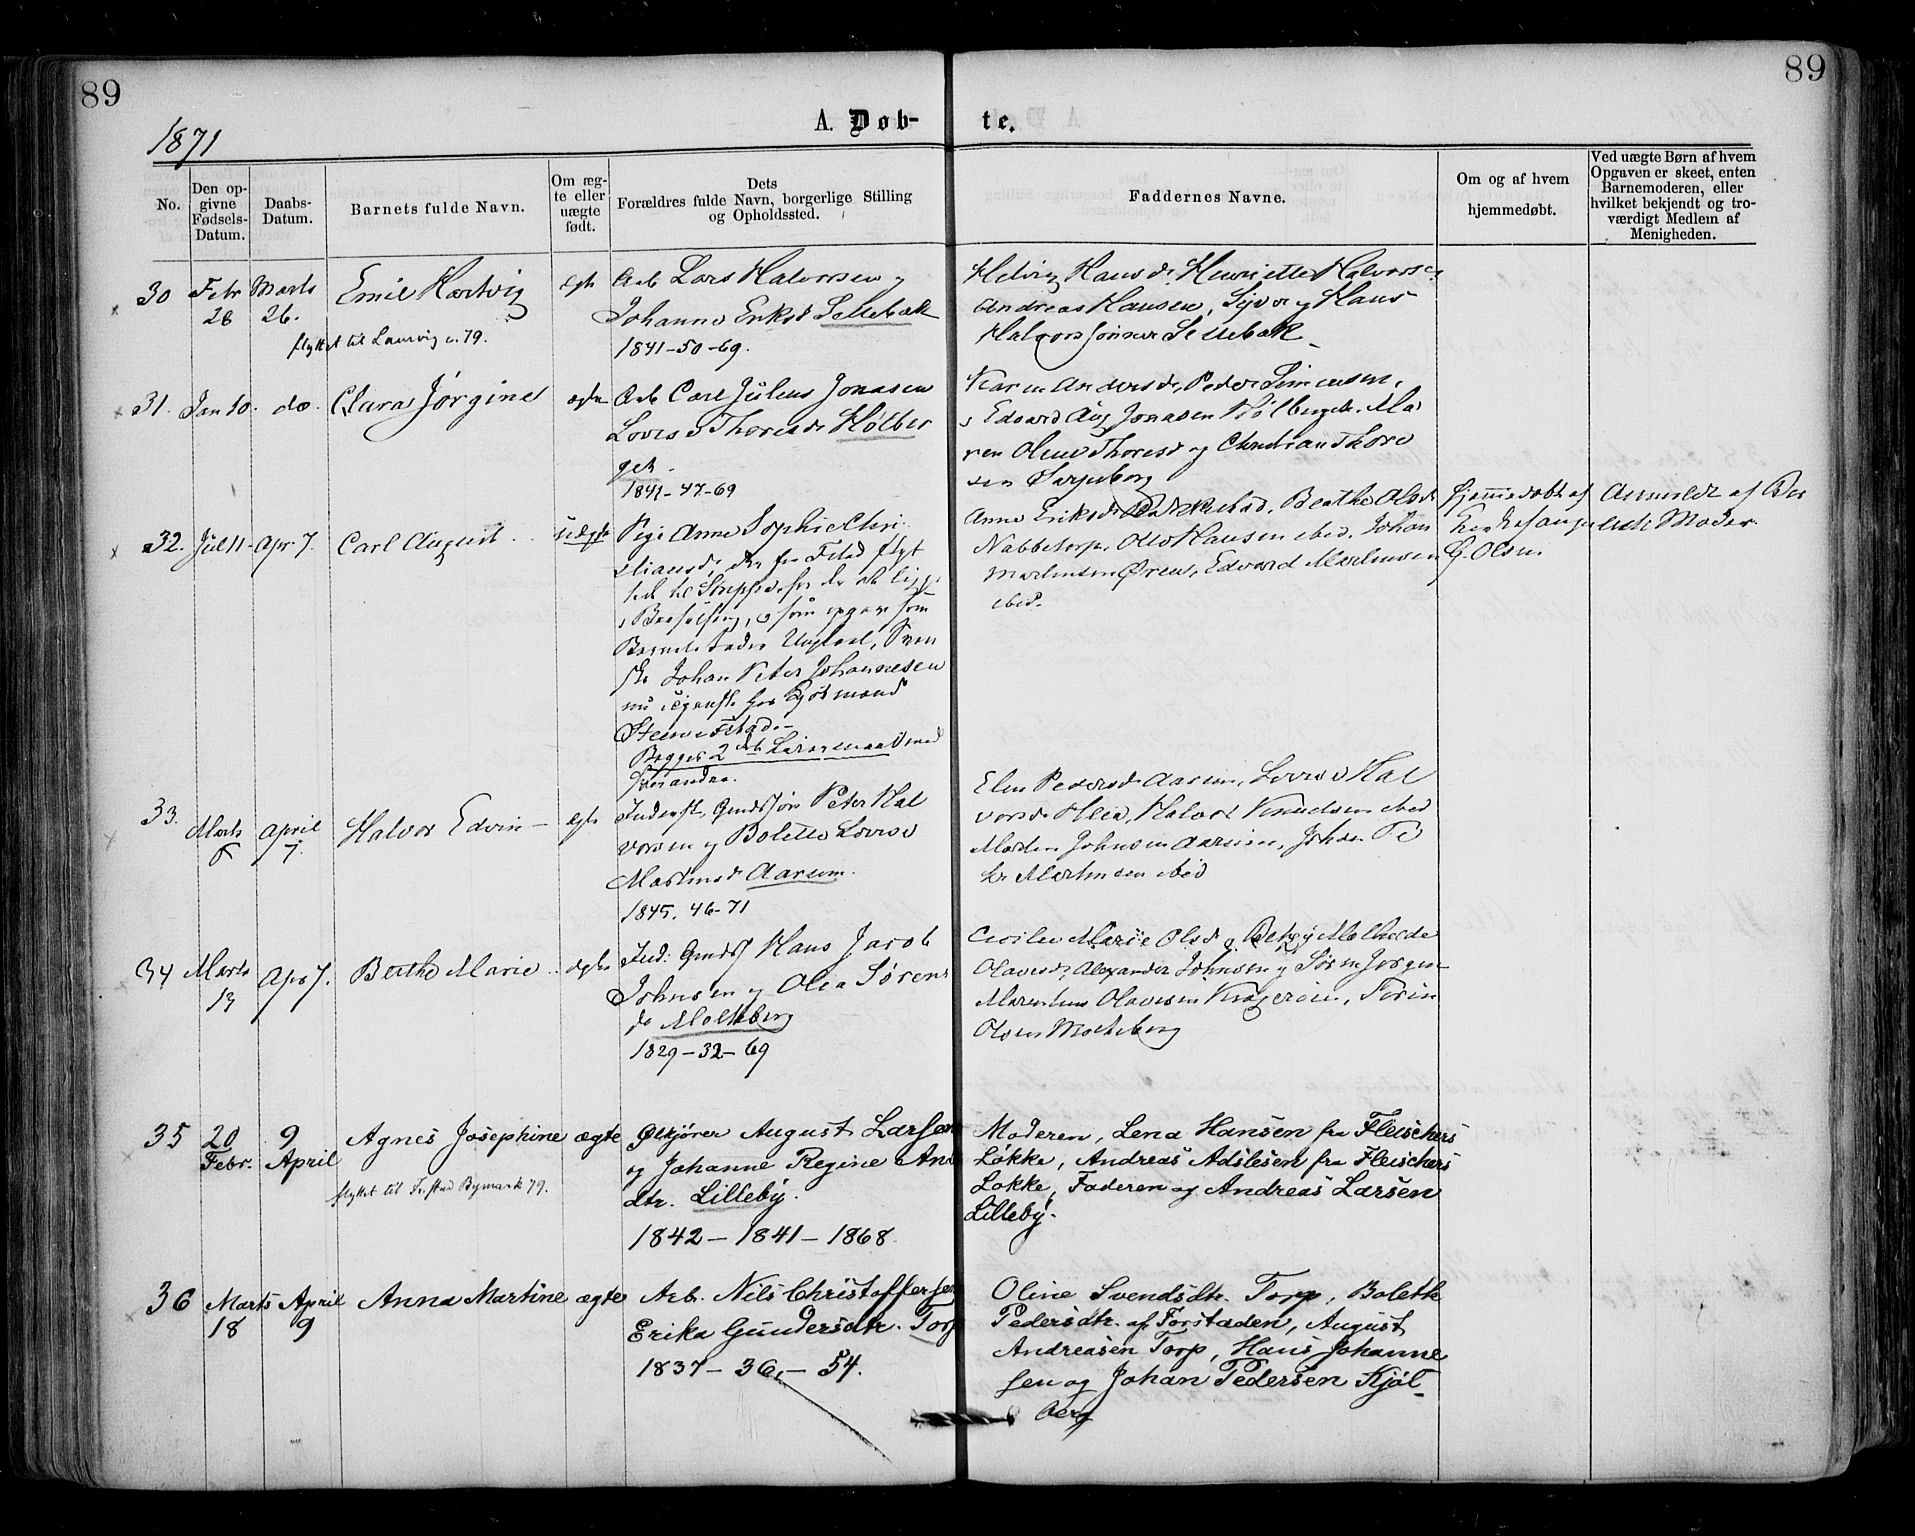 89
89
A. Døb-te.
1871
No.
Den opgivne Fødsels-Datum.
Daabs-Datum.
Barnets fulde Navn.
Om ægte eller uægte født.
Dets
Forældres fulde Navn, borgerlige Stilling
og Opholdssted.
Faddernes Navne.
Om og af hvem
hjemmedøbt.
Ved uægte Børn af hvem
Opgaven er skeet, enten
Barnemoderen, eller
hvilket bekjendt og tro-
værdigt Medlem af
Menigheden.
30 Febr 28 Marts 26. Emil Hartvig ægte
flyttet til Laurvig 79.
Arb Lars Halvorsen og
Johanne Eriksd Sellebak
1841-50-69.
Helvig Hansd, Henriette Halvors
Andreas Hansen, Syver og Hans
Halvorssønner Sellebak
31. Jan 10. do. Clara Jørgine ægte
Arb Carl Julius Jonasen
Lovise Thoresd Hølber
get.
1841-47-69
Karen Andersd, Peder Simensen,
Edvard Aug Jonasen Hølberget. Ma
ren Oline Thoresd og Christian Thore
sen Sarpsborg
32. Jul 11 Apr 7. Carl August uægte
Pige Anne Sophie Chri
stiansd, der fra Fstad flyt
tet til
som opgav som
Barnets Fader Ungkarl, Sven
ske Johan Peter Johannesen
nu i tjeneste hos Kjøbmand
Steen i Fstad.
Begges 2det Leiermaal med
hverandre.
Anne Eriksd Beathe Olsd
Nabbetorp, Otto Hansen ibid, Johan
Martinsen Øren, Edvard Martinsen
ibid.
Hjemmedøbt af
Kirkesanger
G. Olsen
Anmeldt af Bar
nets Moder.
33. Marts 6 April 7. Halvor Edvin ægte
Inderst, Gmdssøn Peter Hal
vorsen og Bolette Lovise
Martinsd Aarsum.
1845. 46-71
Elen Pedersd Aarsum, Lovise Hal
vorsd Hleie, Halvor Knudsen ibid
Morten Johnsen Aarsum, Johan Pe
ter Martinsen ibid
34 Marts 13 Apr 7. Berthe Marie ægte
Ind: Gmds Hans Jacob
Johnsen og Olea Sørens
d. Molteberg
1829-32-69
Cecilie Marie Olsd og Mathilde
Olavesd, Alexander Johnsen og Søren Jørgen
Olavesen Kragerøen,
Olsen Molteberg
35 20 Febr. 9 April Agnes Josephine ægte
flyttet til Fr.stad Bymark 79.
Ølkjører August Larsen
og Johanne Regine And
dtr. Lilleby.
1842 - 1841 - 1868
Moderen, Lena Hansen fra Fleischers
Løkke, Andreas Adslesen fra Fleischers
Løkke, Faderen og Andreas Larsen
Lilleby.
36 Marts 18 April 9 Anna Martine ægte
Arb. Nils Christoffersen
Erika Gundersdtr. Torp
1837 - 36, - 54.
Oline Svendsdtr. Torp, Bolette
Pedersdtr. af Forstaden, August
Andreasen Torp, Hans Johanne
sen og Johan Pedersen Kjøl
berg